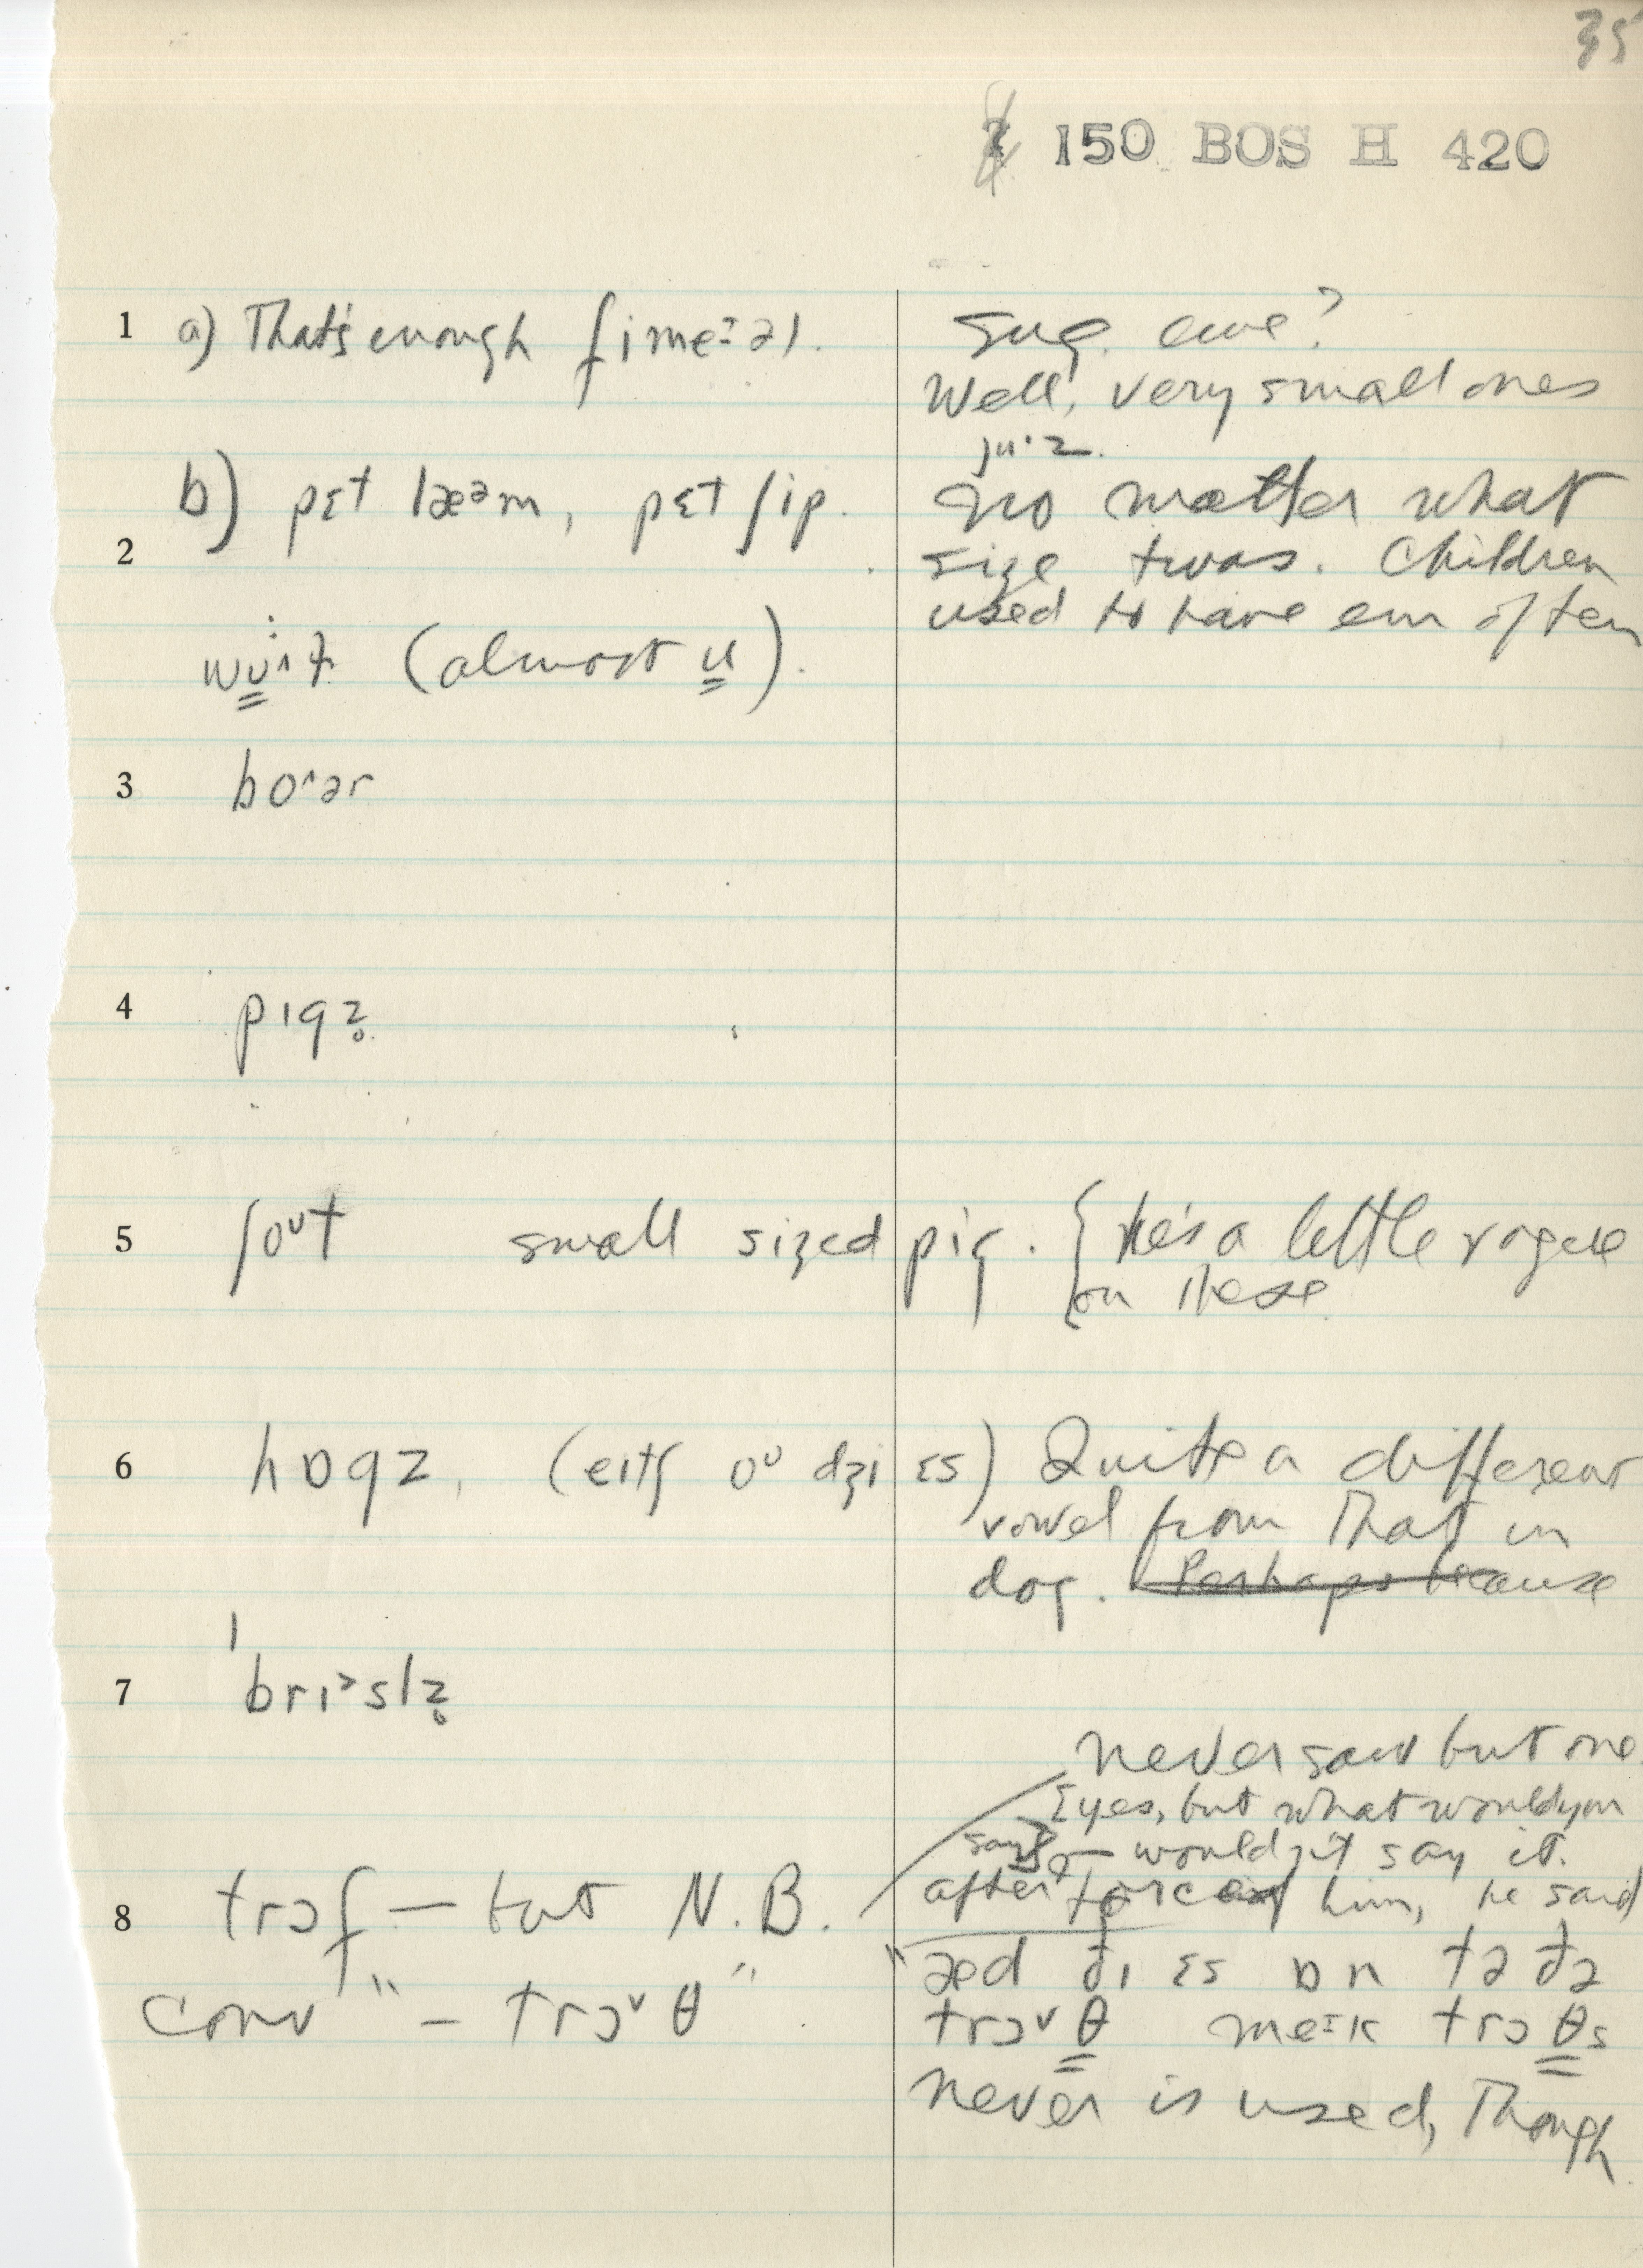 35
150 BOS H 420
1 a) That's enough fimeːəl.
Sug. ewe?
Well, very small ones
juˑz.
b) pɛt læᵊm, pɛt ʃip.
No matter what
2
size twas. Children
used to have em often
wʊ̲ˑ^ɫ (almost u̲).
3 bo^ər
4 pɪgz̥
5 ʃoᵘt small sized pig. {He's a little rogue
on these
6 hɒgz, (eitʃ oᵘ dʒi ɛs) Quite a different
vowel from that in
dog. Perhaps because
7 ˈbrɪ˃slz̥
Never saw but one.
[yes, but what would you
say] – wouldn't say it.
after forced him, he said
8 trɔf – but N.B.
conv" – trɔ˅θ"
"æd ði ɛs ɒn tə ðə
trɔ˅θ meːk trɔθs
never is used, though